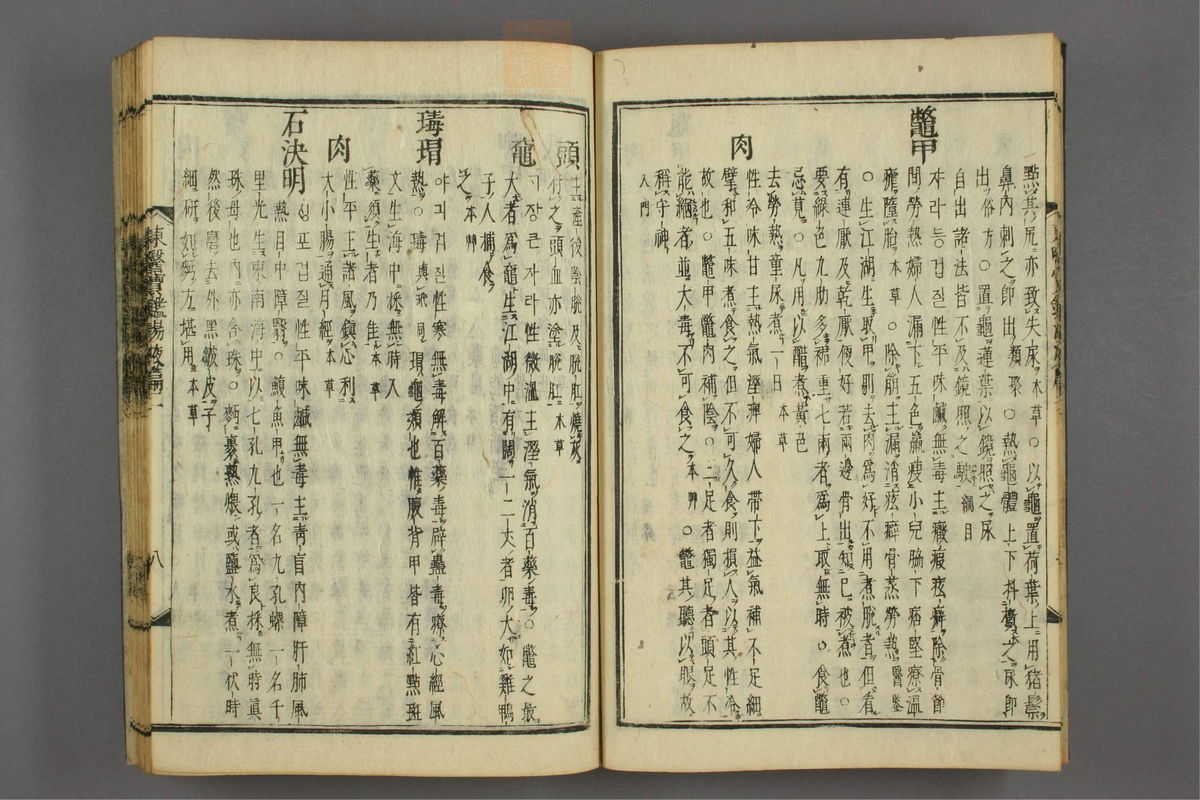 點其尻亦致失尿本草○以龜置荷葉上用猪鬃
鼻內刺之卽出類聚○熱龜體上下抖擻之尿卽
出俗方○置龜蓮葉以鏡照之尿
自出諸法皆不及鏡照之駃綱目
鱉甲
쟈라등겁질性平味鹹無毒主癥瘕痃癖除骨節
間勞熱婦人漏下五色羸瘦小兒脇下痞堅療溫
瘧墮胎本草○除崩主漏消痃癖骨蒸勞熱醫鑒
○生江湖生取甲剔去肉爲好不用煮脫者但看
有連厭及乾厭便好若兩邊骨出知已被煮也○
要綠色九肋多裙重七兩者爲上取無時○食鱉
忌莧○凡用以醋煮黃色
去勞熱童尿煮一日本草
肉
性冷味甘主熱氣溼痺婦人帶下益氣補不足細
擘和五味煮食之但不可久食則損人以其性冷
故也○鱉甲鱉肉補陰○三足者獨足者頭足不
能縮者並大毒不可食之本艸○鱉其聽以眼故
稱守神
入門
頭
主產後陰脫及脫肛燒灰
付之頭血亦塗脫肛本草
黿
ᄀᆞ장큰쟈라性微溫主溼氣消百藥毒○鱉之最
大者爲黿生江湖中有闊一二丈者卵大如雞鴨
子人捕食
之本艸
瑇瑁
야긔겁질性寒無毒解百藥毒辟蠱毒療心經風
熱○瑇與玳同瑁龜類也惟腹背甲皆有紅點班
文生海中採無時入
藥須生者乃佳本草
肉
性平主諸風鎭心利
大小腸通月經本草
石決明
싱포겁질性平味鹹無毒主靑盲內障肝肺風
熱目中障翳○鰒魚甲也一名九孔螺一名千
里光生東南海中以七孔九孔者爲良採無時眞
珠母也內亦含珠○麵裹熟煨或鹽水煮一伏時
然後磨去外黑皺皮子
細研如麪方堪用本草
東醫寶鑑湯液篇二
八